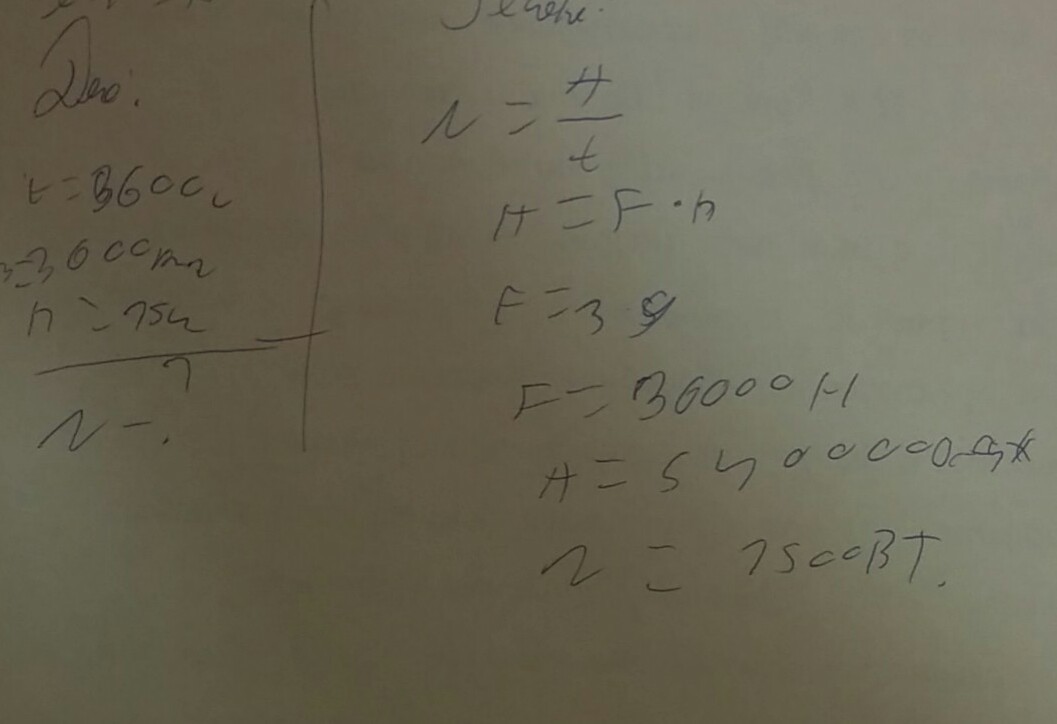 Дано:
t=3600с
m=3600кг
h=15м
N-?
Решение:
N = A/t
A = F·h
F = mg
F = 36000 Н
A = 540000 Дж
N = 1500Вт.